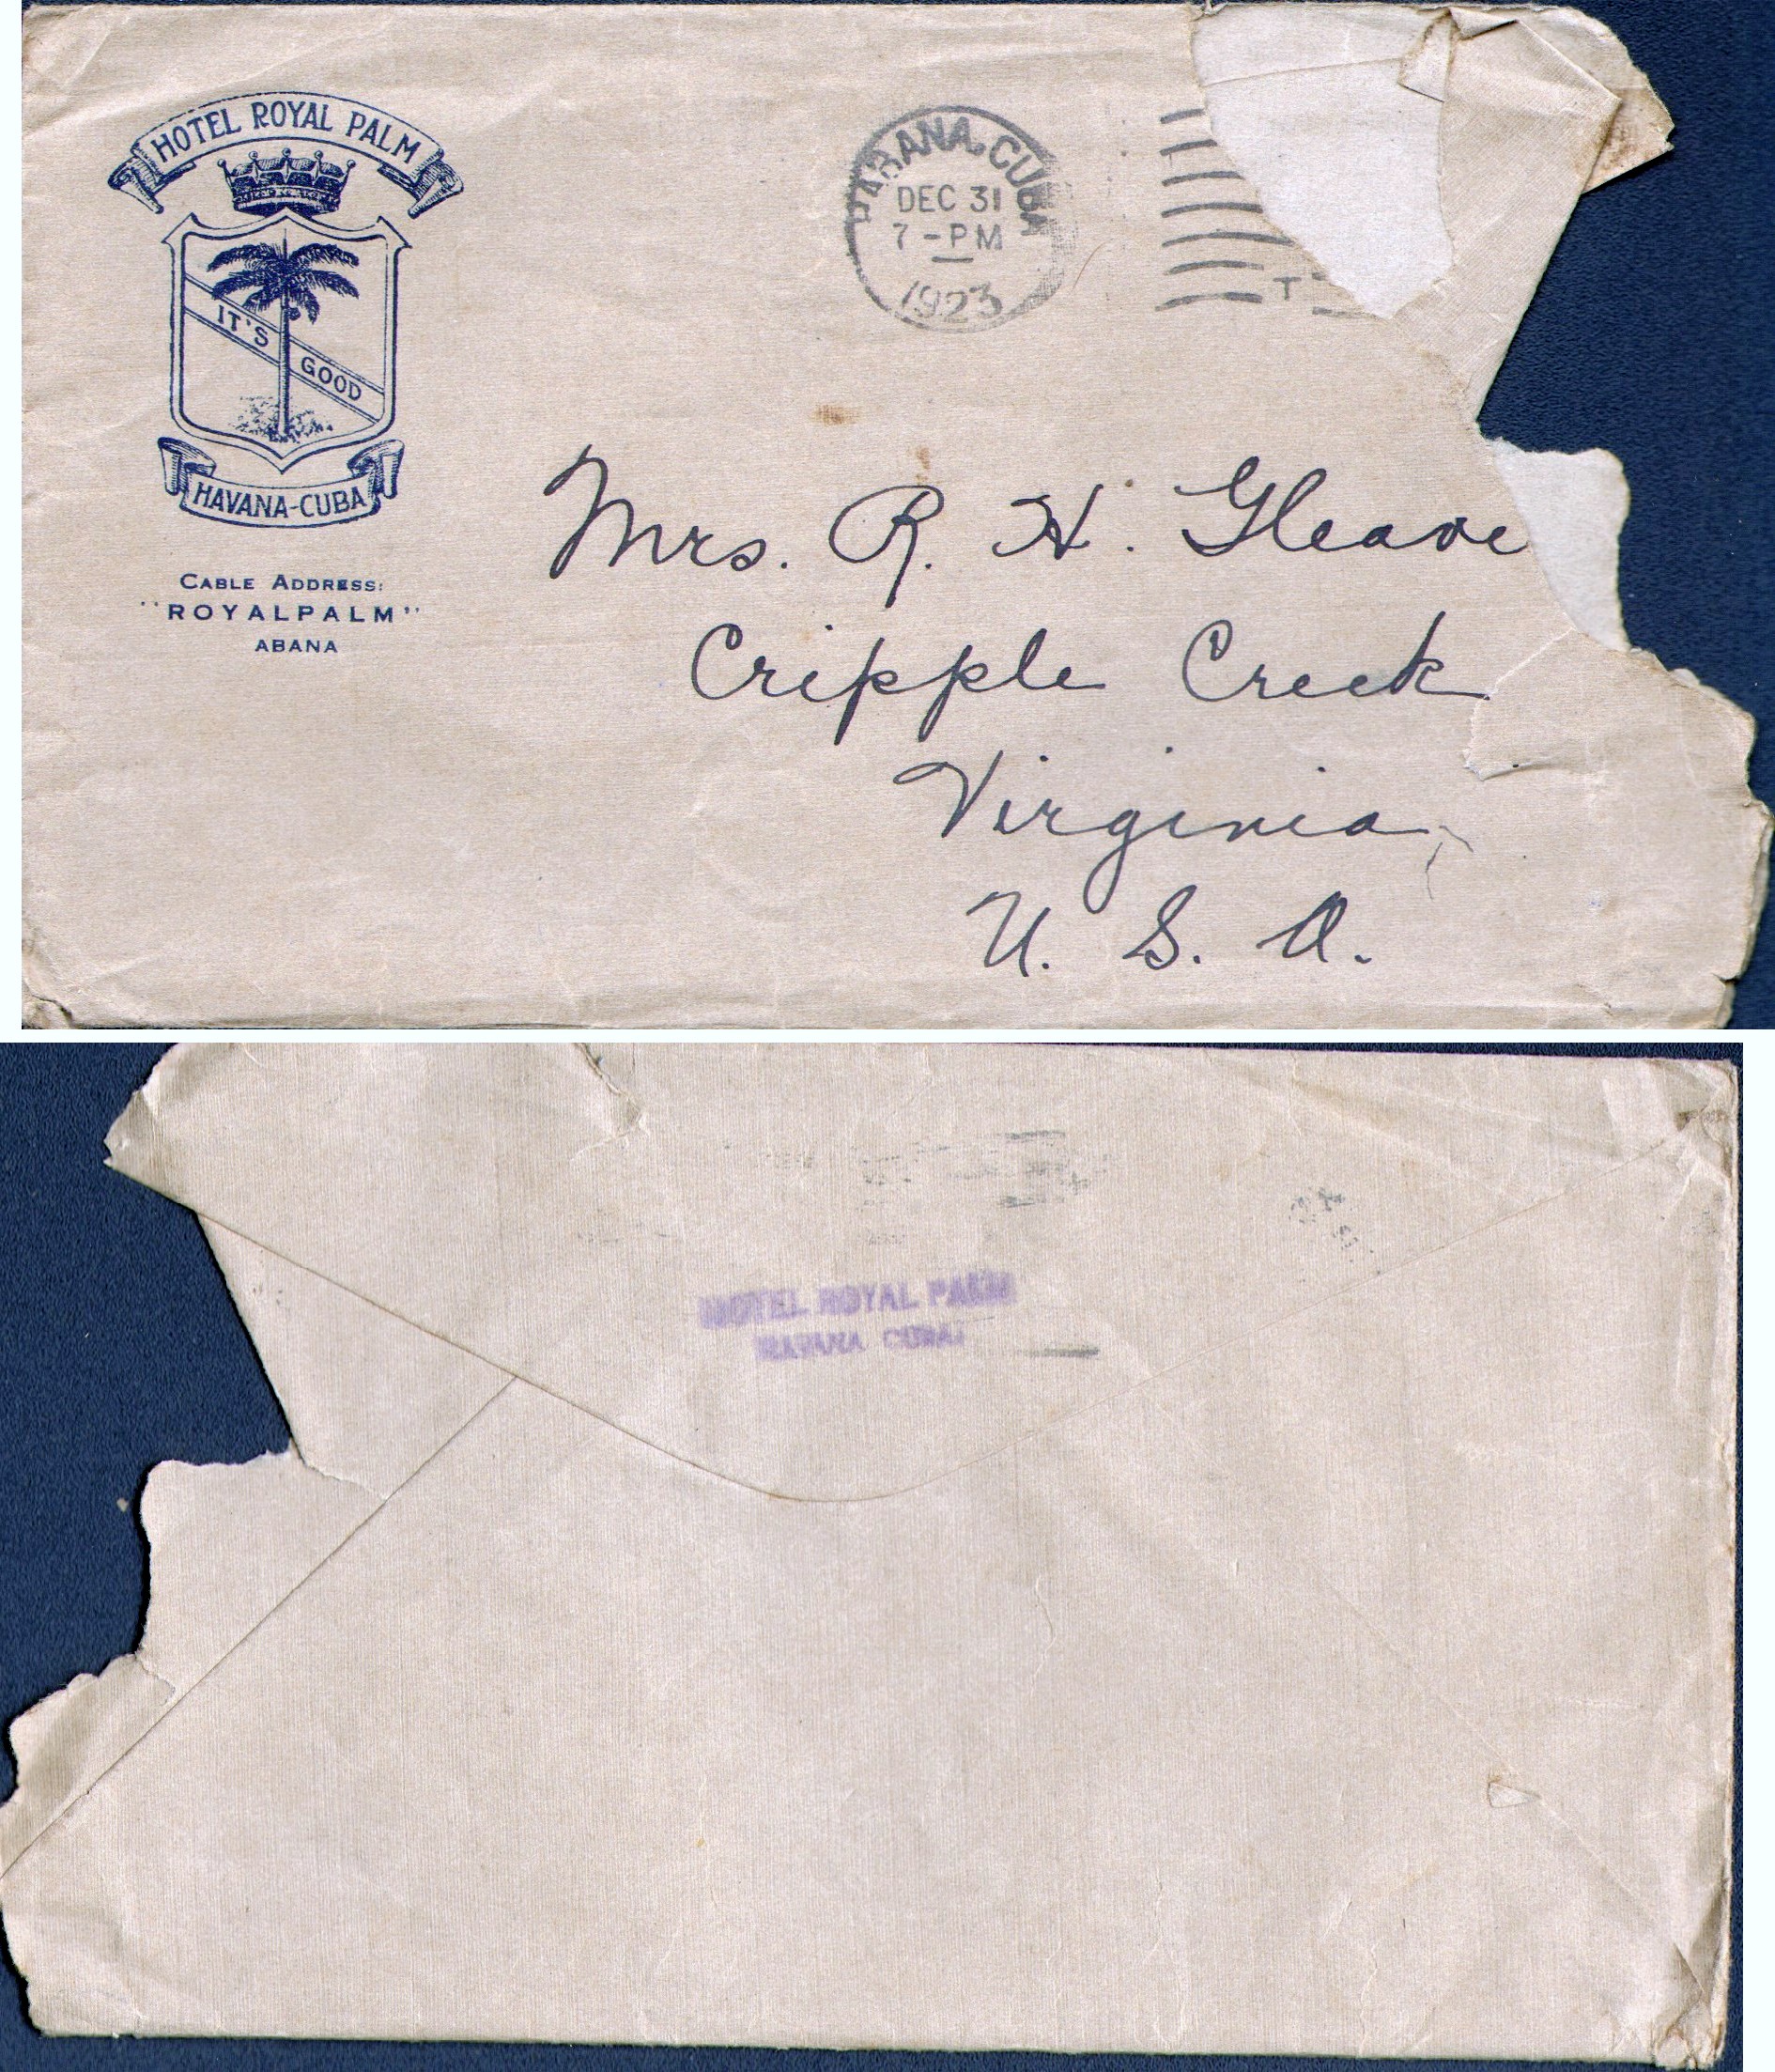 HOTEL ROYAL PALM
IT'S GOOD
HAVANA-CUBA
CABLE ADDRESS:
"ROYALPALM"
ABANA
HABANA. CUBA
DEC 31
7-PM
1923
T
Mrs. R. H. Gleave
Cripple Creek
Virginia,
U. S. A.
HOTEL ROYAL PALM
HAVANA CUBA